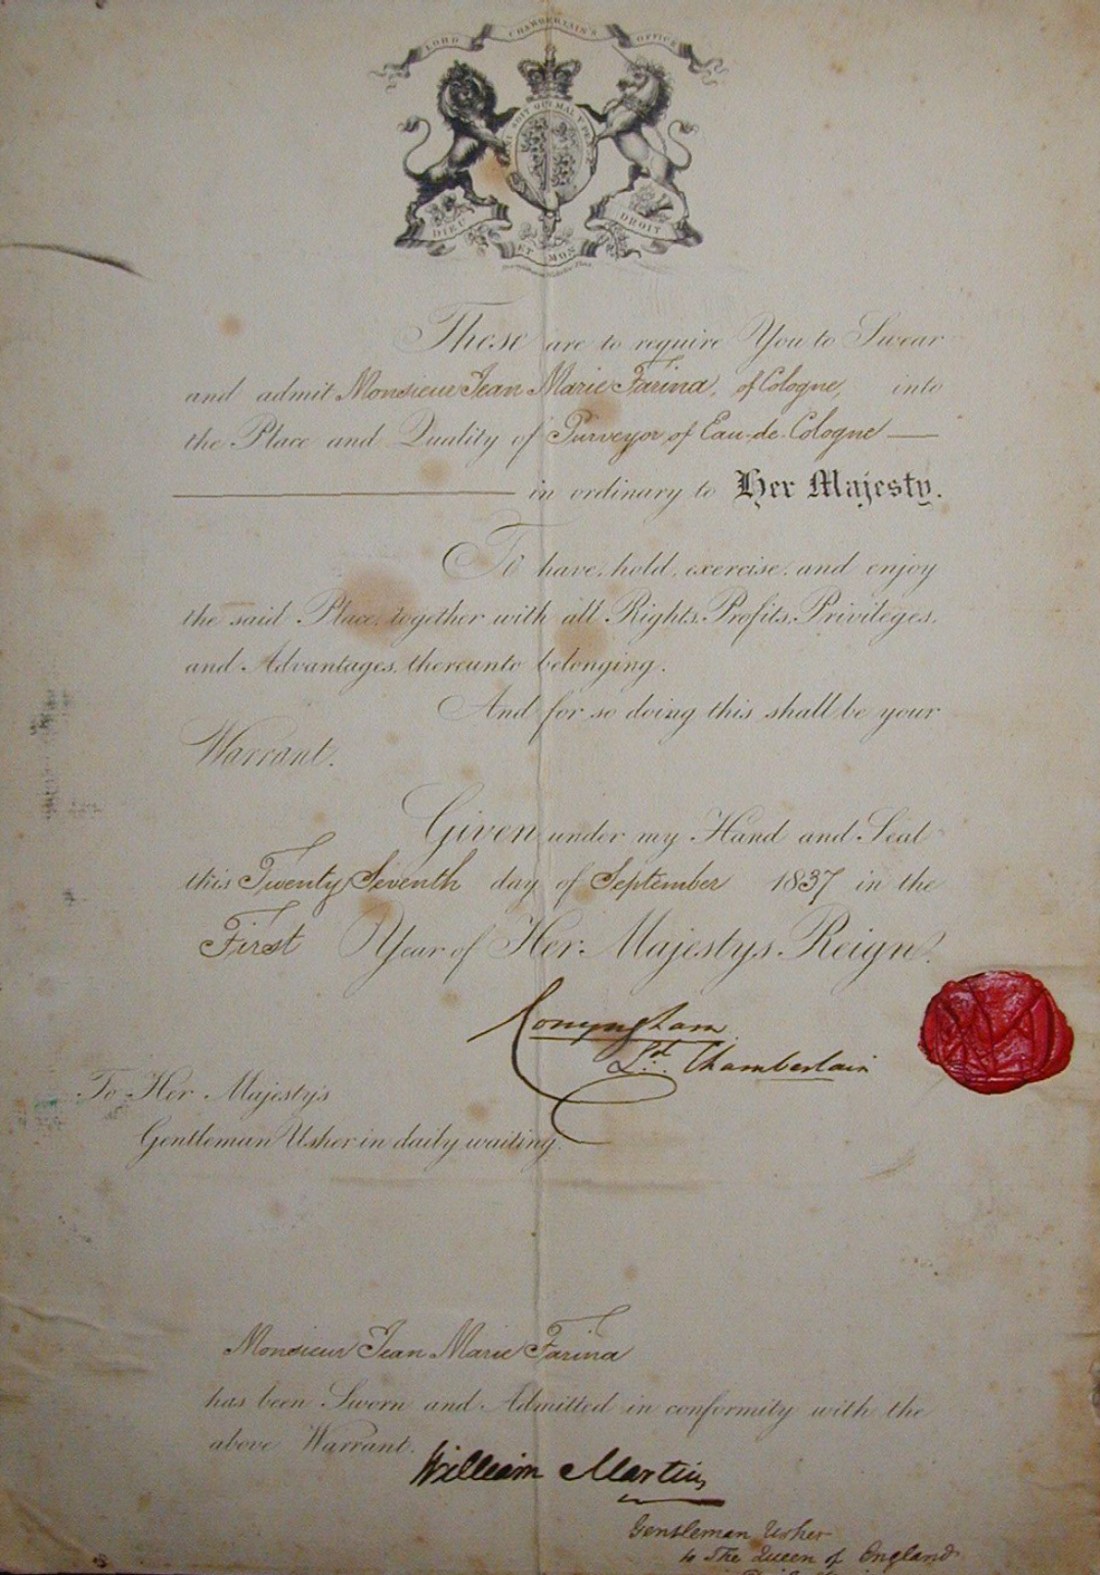 LORD CHAMBERLAIN'S OFFICE
SOIT QUI MAL Y PENSE
DIEU ET MON DROIT
These are to require You to Swear
and admit Monsieur Jean Marie Farina, of Cologne, into
the Place and Quality of Purveyor of Eau-de-Cologne
in ordinary to Her Majesty.
To have, hold, exercise, and enjoy
the said Place, together with all Rights, Profits, Privileges,
and Advantages, thereunto belonging.
And for so doing this shall be your
Warrant.
Given under my Hand and Seal
this Twenty Seventh day of September 1837 in the
First Year of Her Majestys Reign.
Conyngham
Ld. Chamberlain
To Her Majesty's
Gentleman Usher in daily waiting.
Monsieur Jean Marie Farina
has been Sworn and Admitted in conformity with the
above Warrant.
William Martins
Gentleman Usher
to The Queen of England